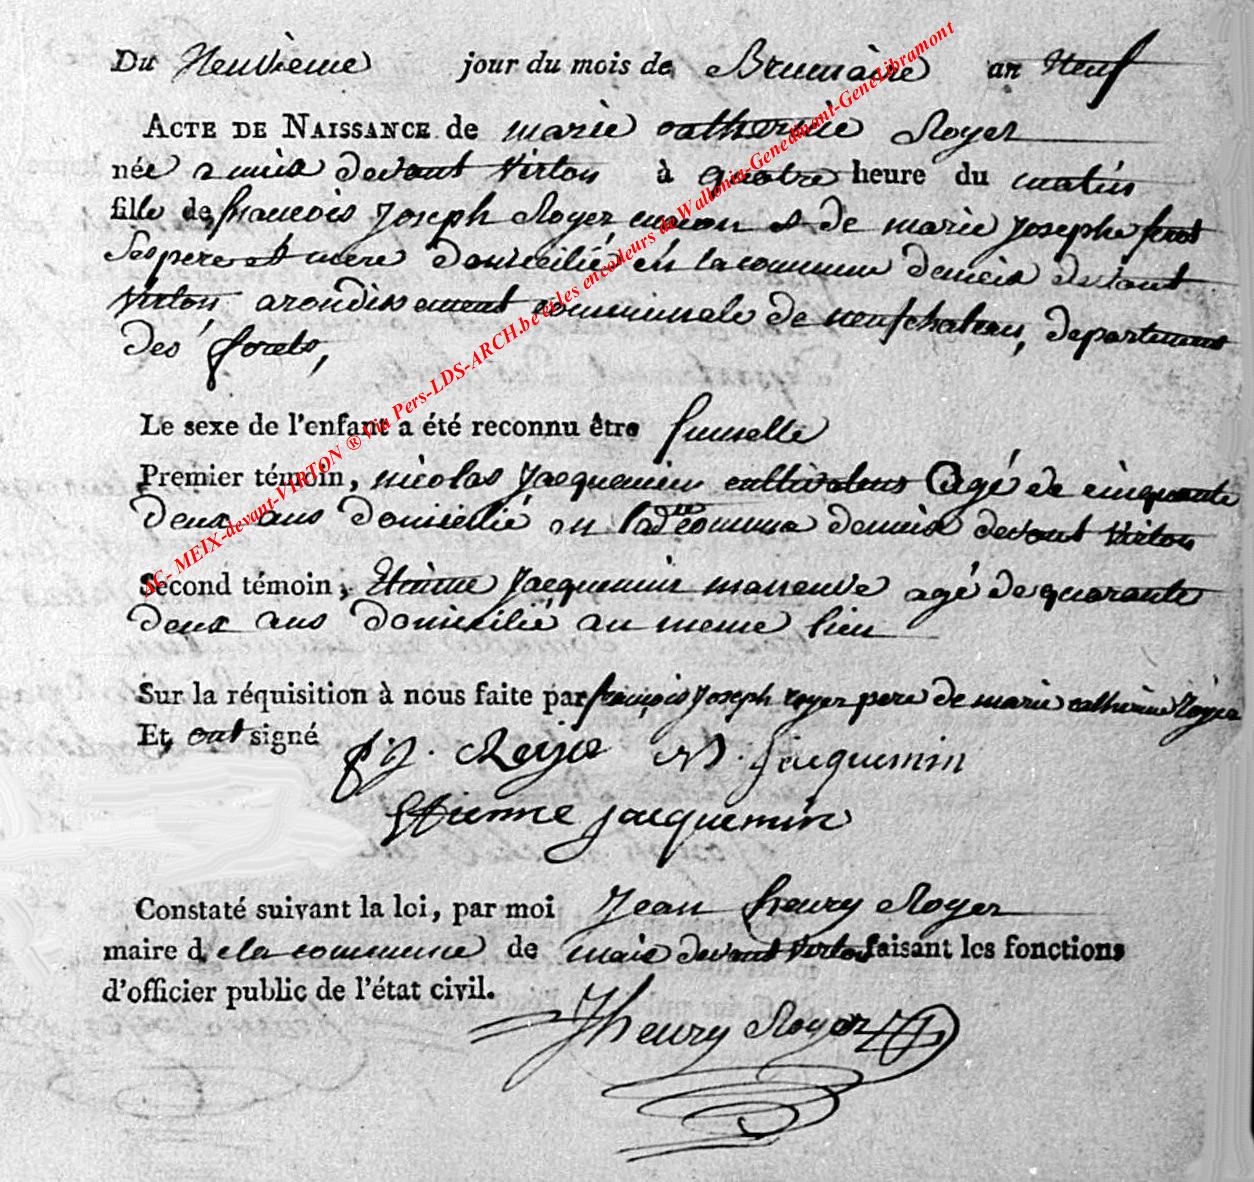 Du Neuvieme jour du mois de Brumaire an Neuf
ACTE DE NAISSANCE de marie catherine Royer
née a meix devant Virton à quatre heure du matin
fille de francois Joseph Royer et de marie Josephe
Ses pere et mere domicilié en la commune demeix devant
Virton arondissement communale de neufchateau, departement
des forets,
Le sexe de l'enfant a été reconnu être fumelle
Premier témoin, nicolas Jacquemin cultivateur agé de cinquante
deux ans domicilié en ladte commune demeix devant Virton
Second témoin, Etienne Jacquemin agé de quarante
deux ans domicilié au meme lieu
Sur la réquisition à nous faite par françois Joseph royer pere de marie catherine Royer
Et ont signé f. j. Royer N. jacquemin
Etienne jacquemin
Constaté suivant la loi, par moi Jean henry Royer
maire d ela commune de meix devant Virton faisant les fonctions
d'officier public de l'état civil.
Jhenry Royer
AC- MEIX-devant-VIRTON ® Via Pers-LDS-ARCH.be et les encodeurs de Wallonia-Genedinant-GeneLibramont